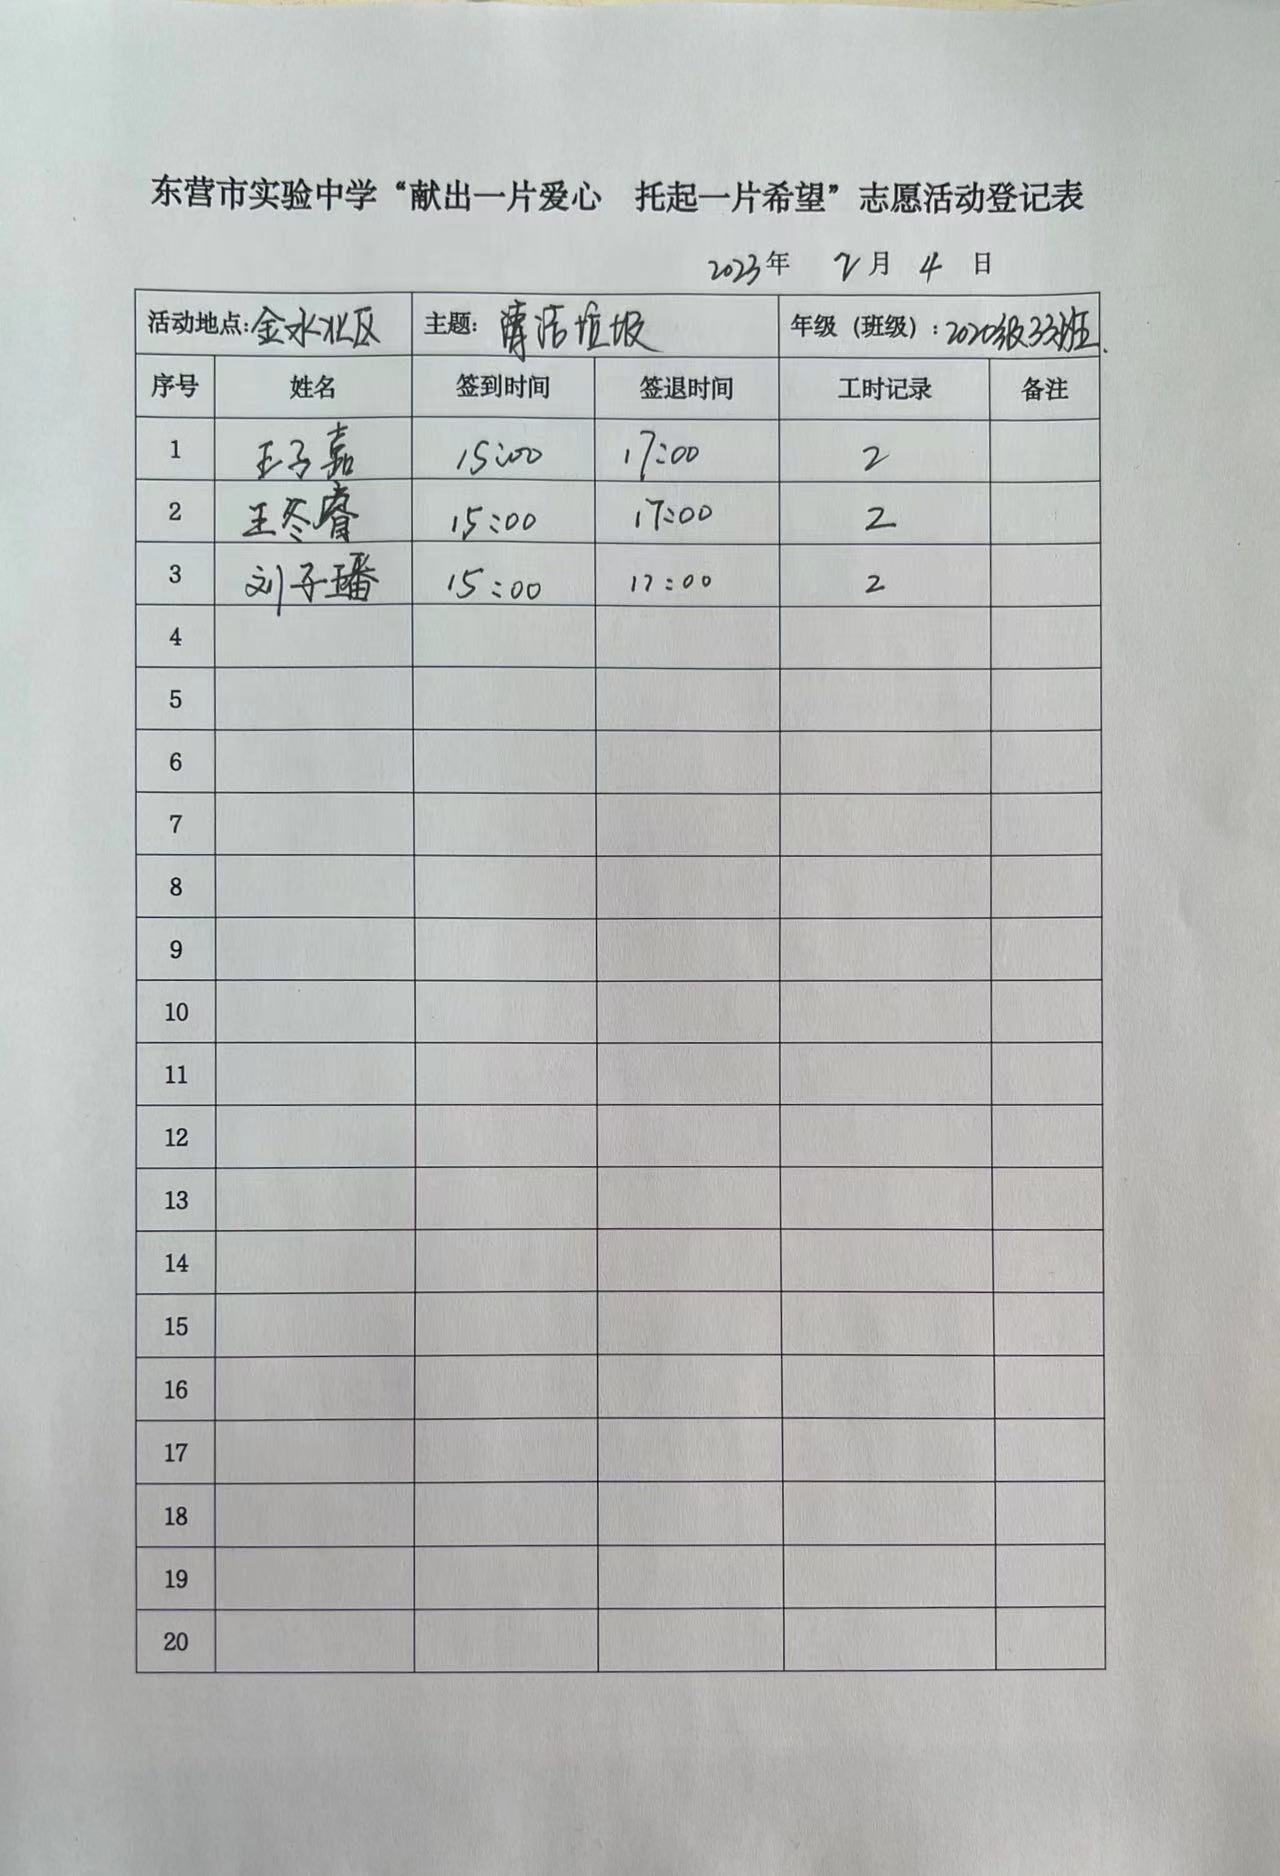 东营市实验中学“献出一片爱心 托起一片希望”志愿活动登记表
2023年 2月 4 日
活动地点:金水北区 主题: 清洁垃圾 年级（班级）: 2020级33班.
序号 姓名 签到时间 签退时间 工时记录 备注
1 王子嘉 15:00 17:00 2
2 王冬睿 15:00 17:00 2
3 刘子璠 15:00 17:00 2
4
5
6
7
8
9
10
11
12
13
14
15
16
17
18
19
20